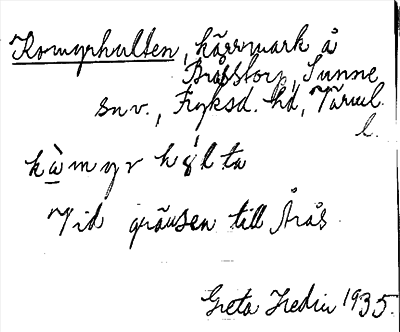 Komyrhulten, kärrmark å
Bråtstorp, Sunne
snv., Fryksd. hd, Värml.
l.
kàmyr hùlta
Vid gränsen till Årås.
Greta Hedin 1935.